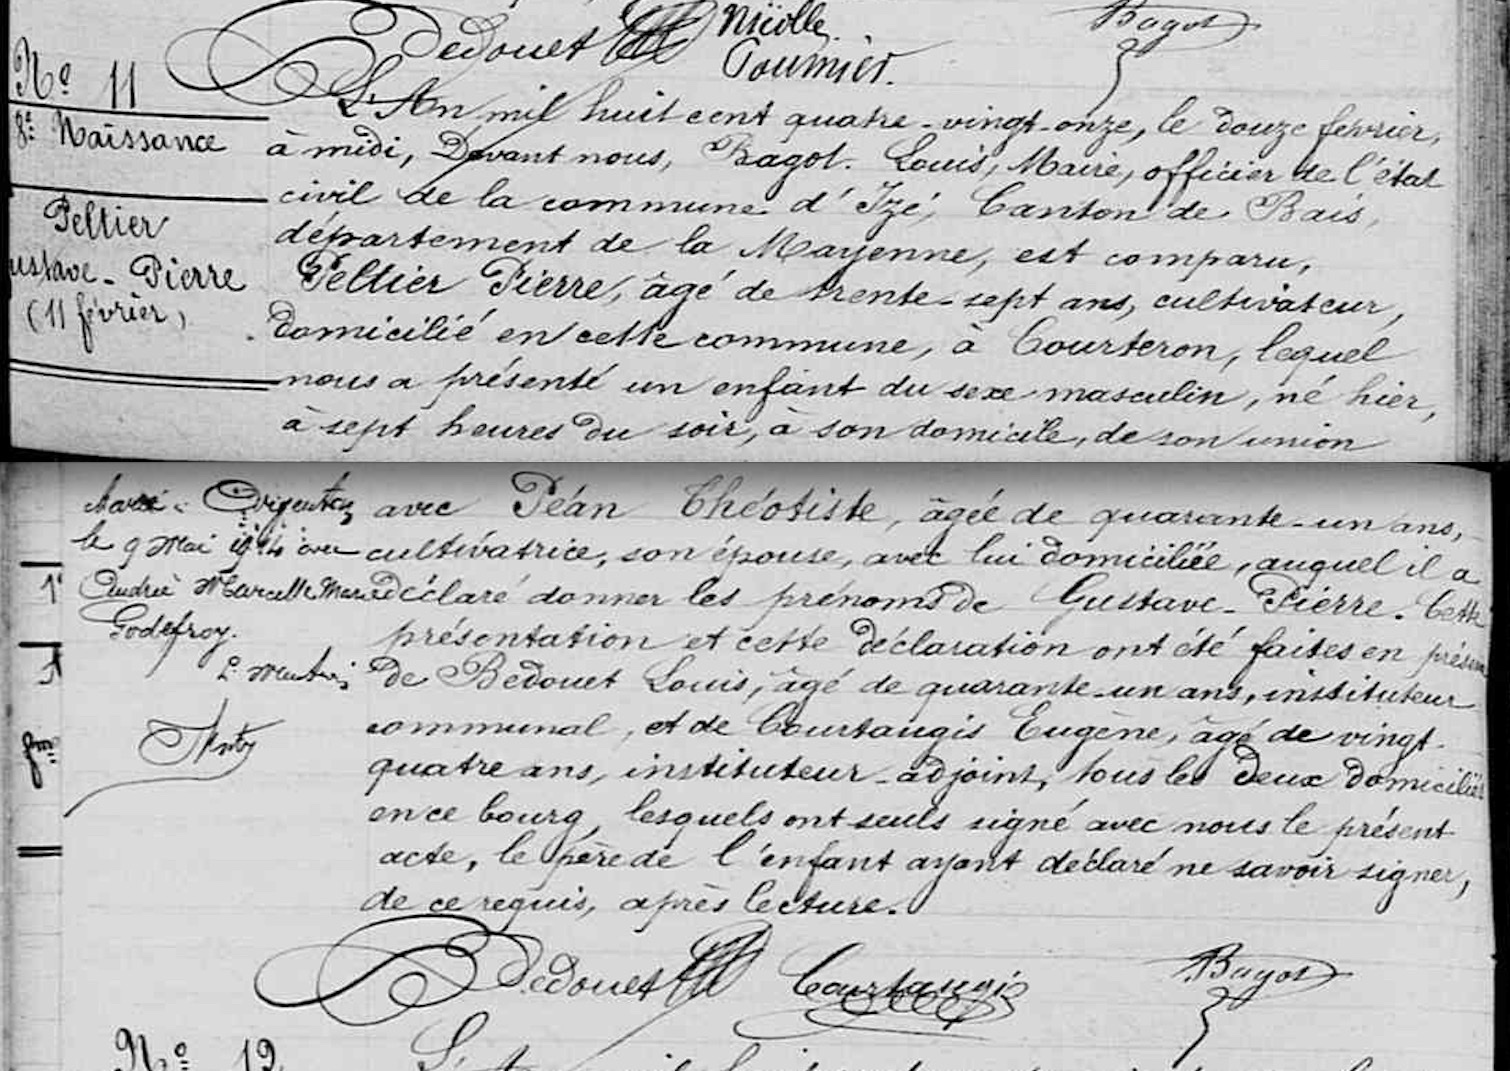 Bedouet Nicolle Bagot
Fournier.
Nº 11
8e Naissance
Peltier
ustave - Pierre
(11 février)
L'An mil huit cent quatre-vingt-onze, le douze février,
à midi, Devant nous, Bagot Louis, Maire, officier de l'état
civil de la commune d'Izé, Canton de Bais,
département de la Mayenne, est comparu,
Peltier Pierre, âgé de trente-sept ans, cultivateur,
domicilié en cette commune, à Courteron, lequel
nous a présenté un enfant du sexe masculin, né hier,
à sept heures du soir, à son domicile, de son union
Marié à Argentan
le 9 Mai avec
Andrée Marcelle Marie
Godefroy.
avec Péan Théotiste, âgée de quarante-un ans,
cultivatrice, son épouse, avec lui domiciliée, auquel il a
déclaré donner les prénoms de Gustave-Pierre. Cette
présentation et cette déclaration ont été faites en présen
de Bedouet Louis, âgé de quarante-un ans, instituteur
communal, et de Courtaugis Eugène, âgé de vingt-
quatre ans, instituteur-adjoint, tous les deux domiciliés
en ce bourg, lesquels ont seuls signé avec nous le présent
acte, le père de l'enfant ayant déclaré ne savoir signer,
de ce requis, après lecture.
Bedouet Courtaugis Bagot
Nº 12